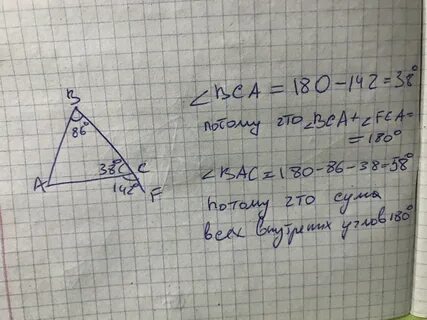 B
86°
38°
C
A
142°
F
∠BCA = 180 - 142 = 38°
потому что ∠BCA + ∠FCA =
= 180°
∠BAC = 180 - 86 - 38 - 58°
потому что сума
всех внутрених углов 180°